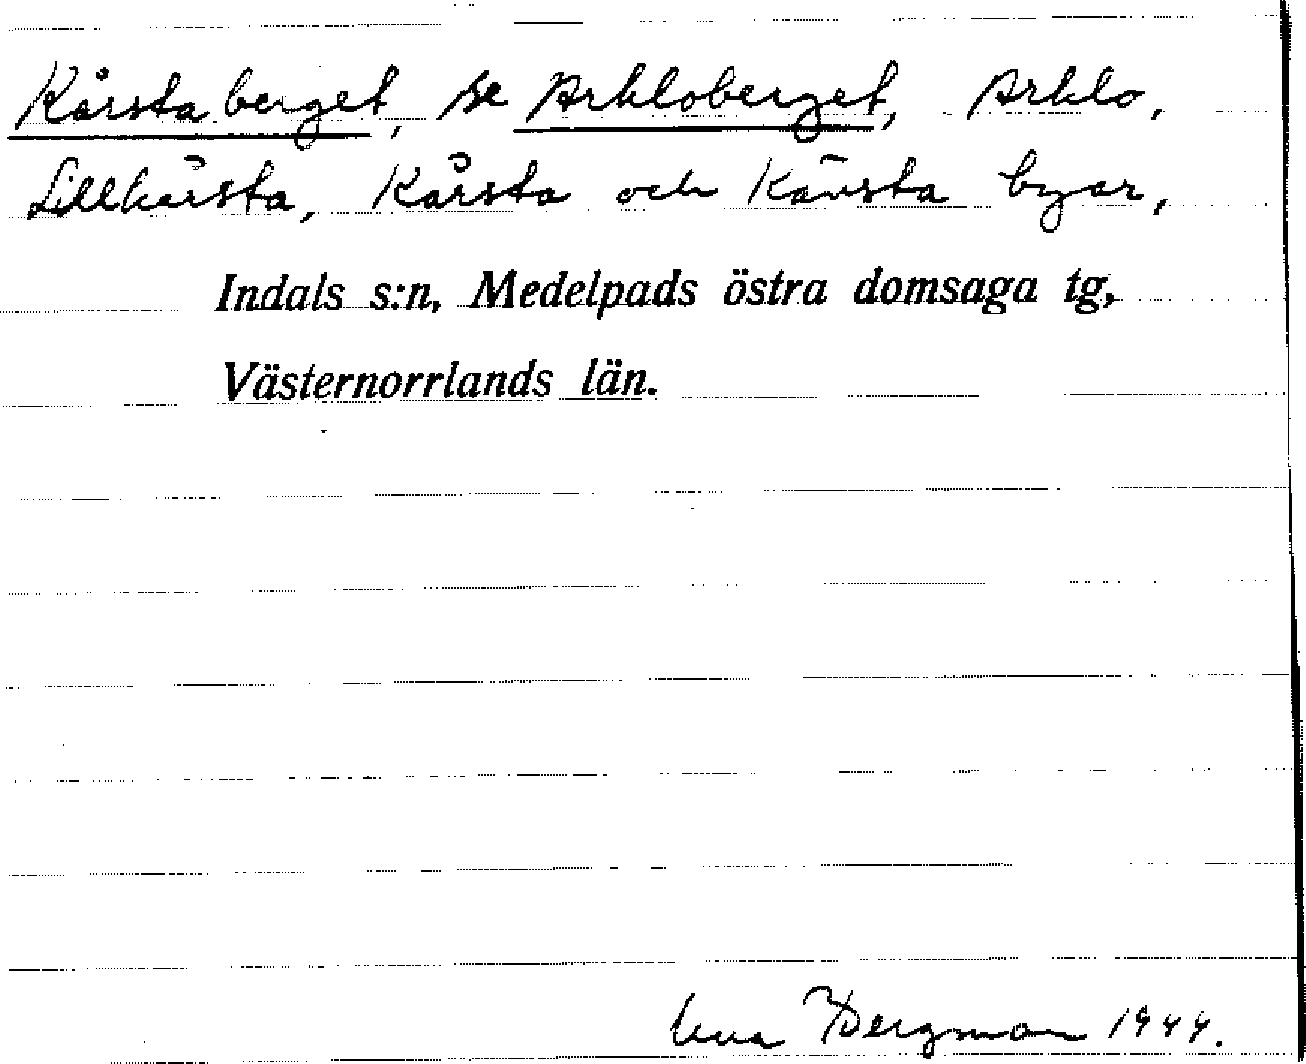 Kårstaberget, se Arkloberget, Arklo,
Lillkårsta, Kårsta och Kävsta byar,
Indals s:n, Medelpads östra domsaga tg,
Västernorrlands län.
Bergman 1944.